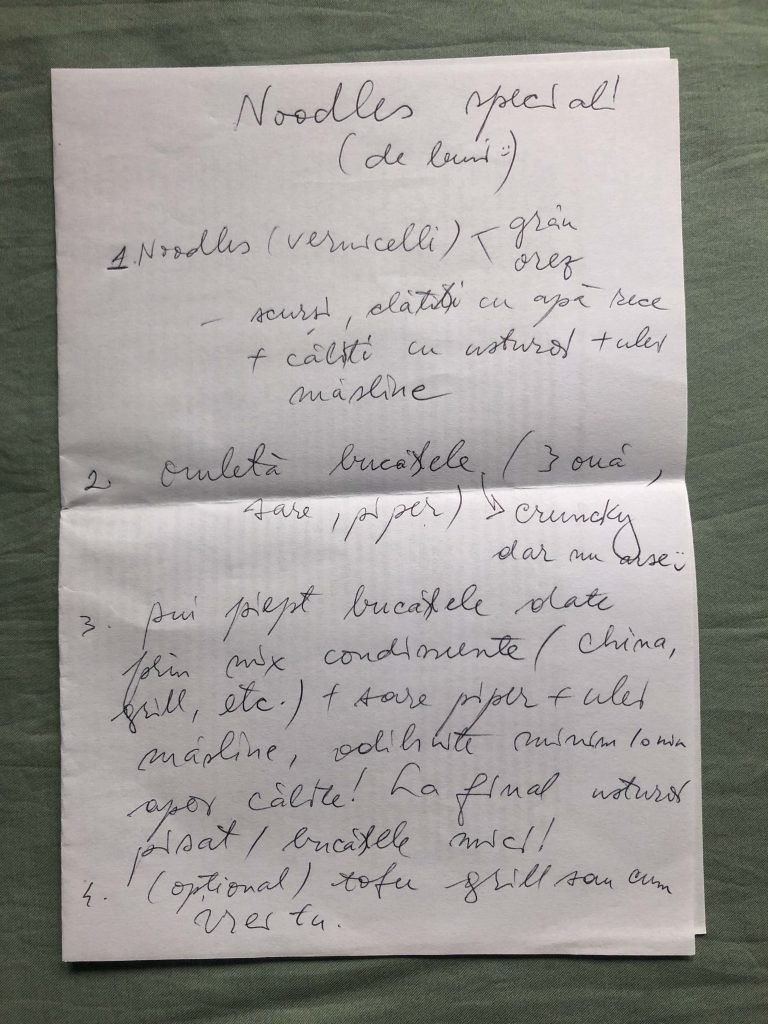 Noodles special!
(de luni :)
1. Noodles (vermicelli) < grâu
orez
- scurși, clătiți cu apă rece
+ căliți cu usturoi + ulei
măsline
2. omletă bucățele (3 ouă,
sare, piper) → cruncky
dar nu arse :)
3. pui piept bucățele date
prin mix condimente (china,
grill, etc.) + sare piper + ulei
măsline, odihnite minim 10 min
apoi călite! La final usturoi
pisat / bucățele mici!
4. (opțional) tofu grill sau cum
vrei tu.